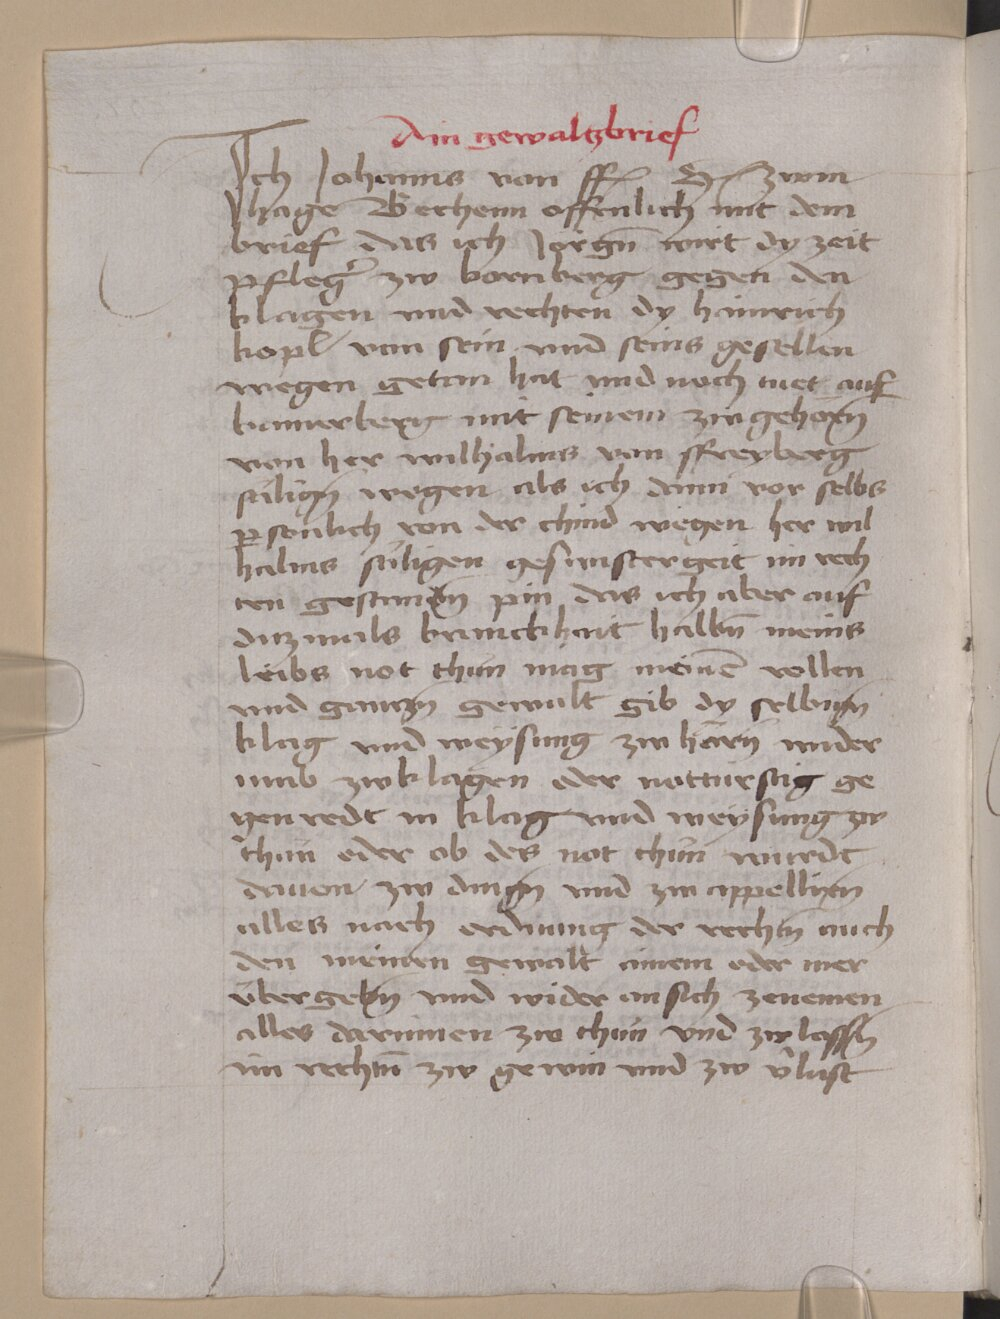 Ain gewaltzbrief
Ich Johanns von ff S zwm
hage Bechenn offenlich mit dem
brief das ich Jorgn̄ wirt dy zeit
pfleg̃ zw bornberg gegen den
klagen vnd rechten dy hainrich
kopl von sein vnd seins gesellen
wegen getan hat vnd noch tuet auf
bannerberg mit seinem zwgehorn̄
von her wilhalms von ffreyberg
sälign̄ wegen als ich dann vor selbs
p̲sonlich von der chind wegen her wil
halms säligen gesunstergeit im rech
ten gestanden pin das ich aber auf
diczmals kranckhait halbn̄ meins
leibs not thun mag meinē vollen
vnd ganczn̄ gewalt gib dy selbign̄
klag vnd weysung zw hörn̄ wider
umb zwklagen oder notturftig ge
gen redt in klag vnd weysung zw
thun oder ob des not thun wurdt
dauon zw dingn̄ vnd zw appellirn̄
alles nach ordnung der rechtn̄ auch
den meinen gewalt ainem oder mer
übergebn̄ vnd wider an sich zenemen
alles darinnen zw thun vnd zw lassn̄
im rechtn̄ zw gewin vnd zw v̂lust